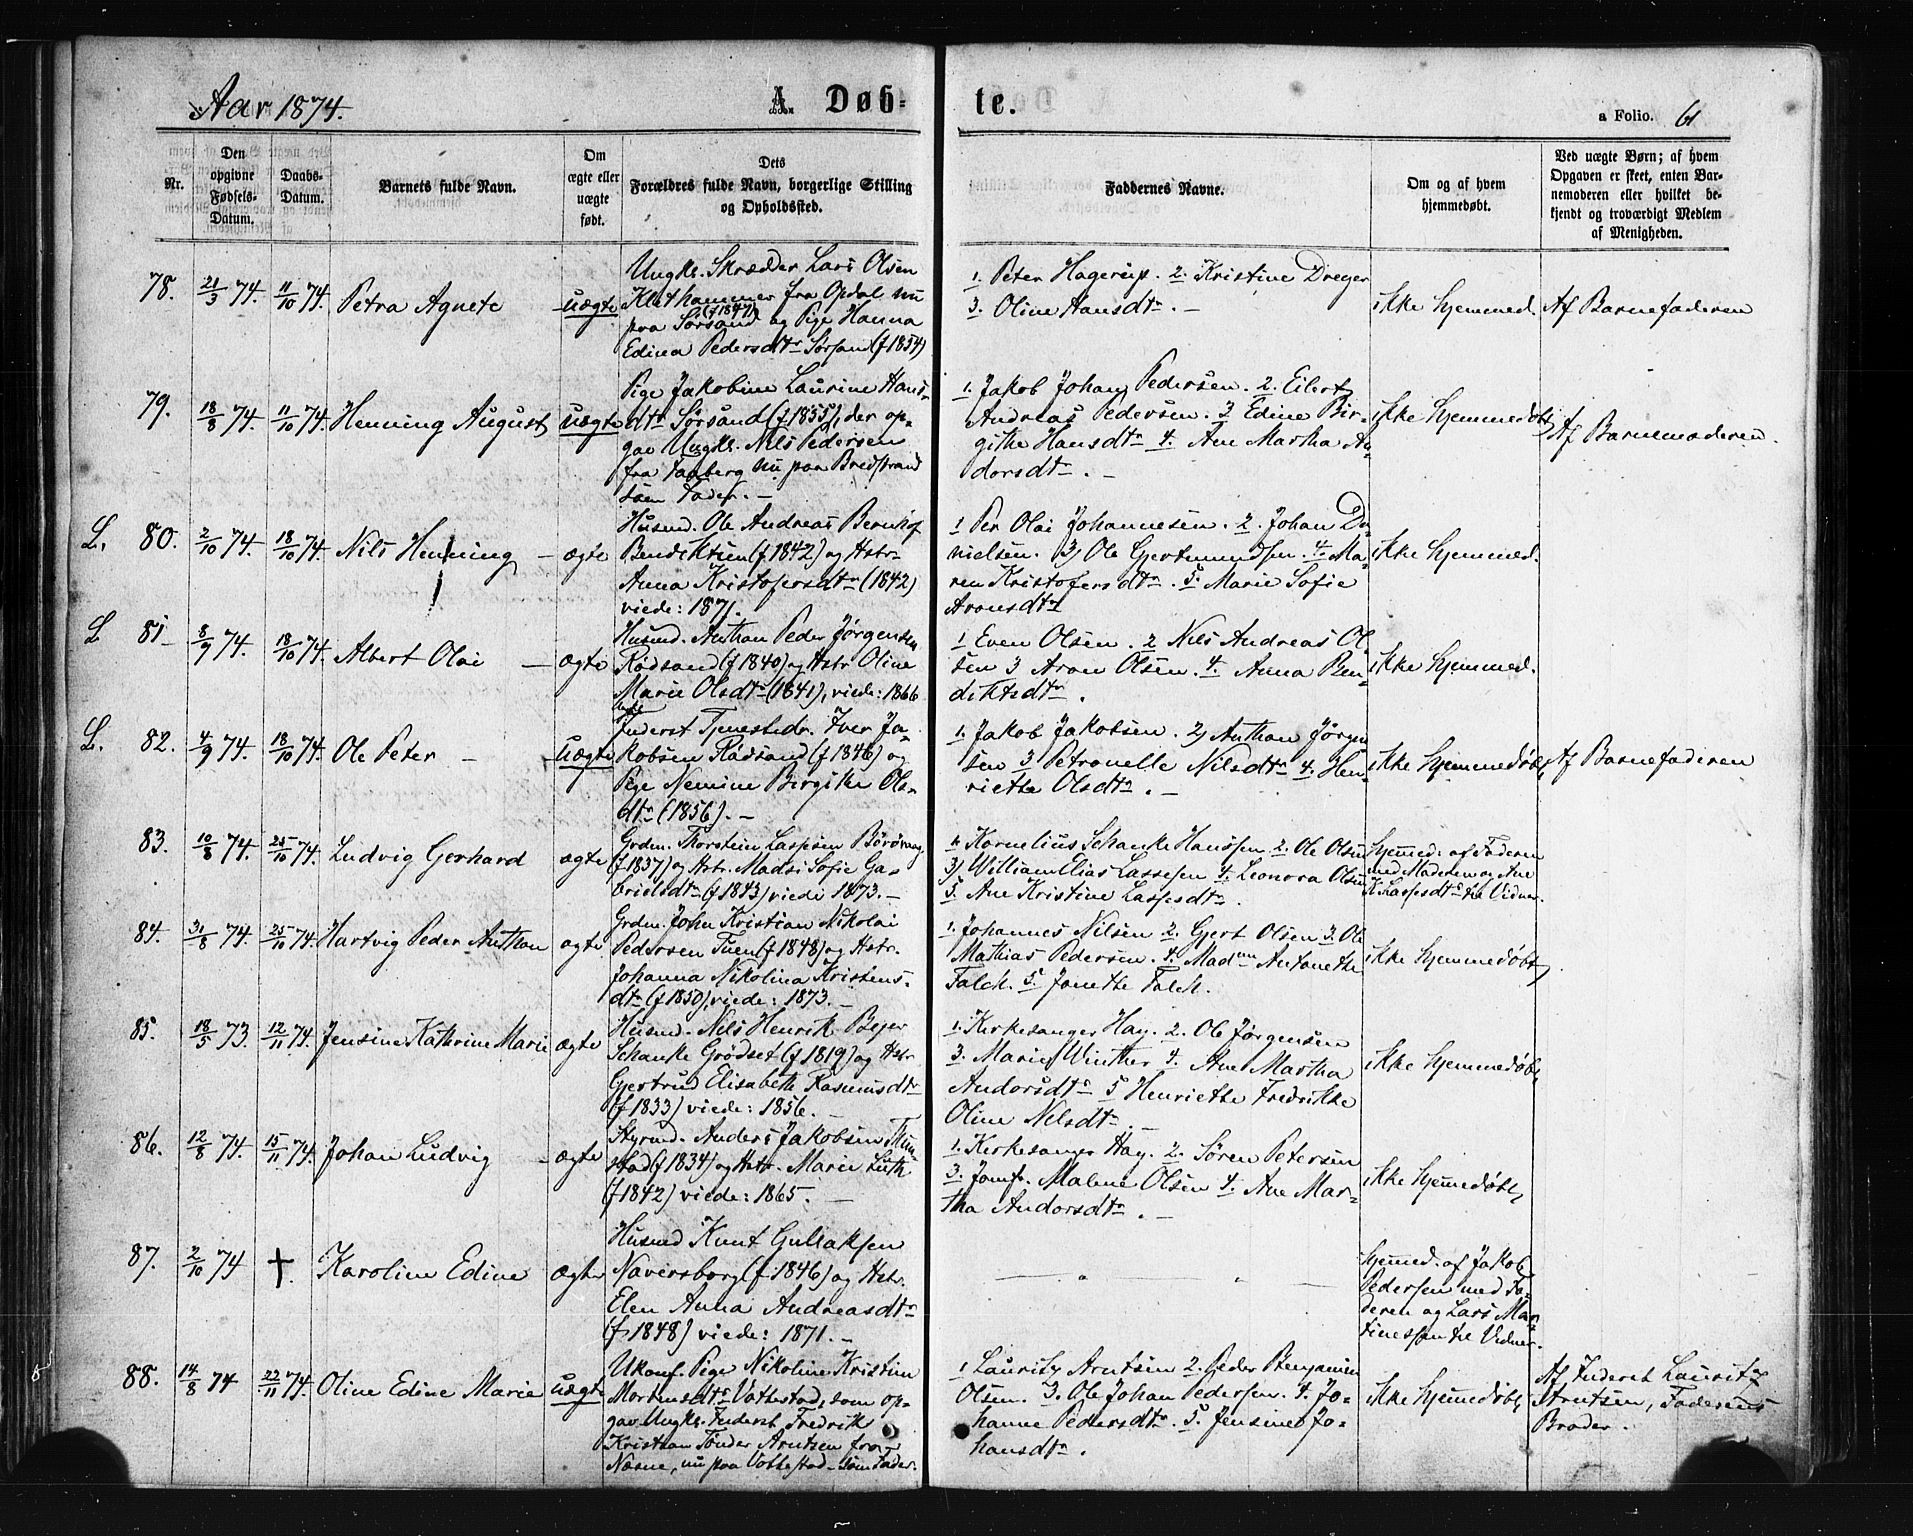 Aar 1874.
A. Døb-
te.
a Folio. 61
Nr.
Den opgivne Fødsels-Datum.
Daabs-Datum.
Barnets fulde Navn.
Om ægte eller uægte født.
Dets Forældres fulde Navn, borgerlige Stilling og Opholdssted.
Faddernes Navne.
Om og af hvem hjemmedøbt.
Ved uægte Børn; af hvem Opgaven er skeet, enten Barnemoderen eller hvilket bekjendt og troværdigt Medlem af Menigheden.
78. 21/3 74. 11/10 74. Petra Agnete uægte
Ungk. Skrædder Lars Olsen
Klethammer fra Opdal nu
paa Sørsand (f 1847) og Pige Hanna
Edina Pedersdtr Sørsand (f 1854)
1. Peter Hagerup. 2. Kristine Dreyer
3. Oline Hansdtr. -
ikke hjemmed.
Af Barnefaderen
79. 18/8 74. 11/10 74. Henning August uægte
Pige Jakobine Laurine Hans-
dtr Sørsand (f 1855), der op-
gav Ungk. Nils Pedersen
fra Vaaberg nu paa Bredstrand
som Fader. -
1. Jakob Johan Pedersen. 2. Eilert
Andreas Pedersen. 3 Edine Bir-
githe Hansdtr 4. Ane Martha An-
dorsdtr. -
ikke hjemmedøbt
Af Barnemoderen.
L. 80. 2/10 74. 18/10 74. Nils Henning - ægte
Husmd. Ole Andreas Bernhof
Bendiktsen (f 1842) og Hstr.
Anna Kristofersdtr (1842)
viede: 1871.
1 Per Olai Johannesen. 2. Johan Da-
nielsen. 3) Ole Gjertmundsen. 4. Ma-
ren Kristofersdtr. 5. Marie Sofie
Aronsdtr
ikke hjemmed.
L 81 8/9 74. 18/10 74. Albert Olai - ægte
Husmd. Anthon Peder Jørgensen
Rødsand (f 1840) og Hstr Oline
Marie Olsdtr (1841), viede: 1866
1 Even Olsen. 2 Nils Andreas Ol-
sen 3 Aron Olsen. 4. Anna Ben-
diktsdtr.
ikke hjemmed.
L. 82. 4/9 74. 18/10 74. Ole Peter - uægte
Inderst Tjenestedr. Iver Ja-
kobsen Rødsand (f 1846) og
Pige Nemine Birgitte Ols-
dtr (1856). -
1. Jakob Jakobsen. 2) Anthon Jørgen-
sen 3 Petronelle Nilsdtr 4. Hen-
riette Olsdtr. -
ikke hjemmedøbt
Af Barnefaderen
83. 10/8 74. 25/10 74. Ludvig Gerhard ægte
Grdm. Thorstein Lassesen Børøvaag
(f 1837) og Hstr. Madsi Sofie Ga-
brielsdtr (f 1843) viede 1873. -
1. Kornelius Schanke Hanssen 2. Ole Olsen
3) William Elias Lassesen 4. Leonora Olsen
5. Ane Kristine Lassesdtr.
hjemmed. af Faderen
med Moderen og Ane
K. Lassesdtr til Vidner.
84. 31/8 74. 25/10 74. Hartvig Peder Anthon ægte
Grdm. John Kristian Nikolai
Pedersen Tuen (f 1848) og Hstr.
Johanna Nikolina Kristens-
dtr (f 1850), viede: 1873. -
1. Johannes Nilsen 2. Gjert Olsen 3. Ole
Mathias Pedersen. 4. Madm Antonette
Falch. 5. Janette Falch.
ikke hjemmedøbt
85. 18/5 73. 12/11 74. Jensine Kathrine Marie ægte
Husmd. Nils Henrik Bejer
Schanke Grødset (f 1819) og Hstr
Gjertrud Elisabeth Rasmusdtr
(f 1833) viede: 1856. -
1. Kirkesanger Hay. 2. Ole Jørgensen
3. Marie Winther 4. Ane Martha
Andorsdtr 5 Henriette Fredrikke
Oline Nilsdtr. -
ikke hjemmedøbt
86. 12/8 74. 15/11 74. Johan Ludvig - ægte
Styrmd. Anders Jakobsen Thun-
stad (f 1834) og Hstr. Marie Luth
(f 1842) viede: 1865. -
1. Kirkesanger Hay. 2. Søren Petersen
3. Jomf. Malene Olsen 4. Ane Mar-
tha Andorsdtr. -
ikke hjemmedøbt
87. 2/10 74 †. Karoline Edine ægte
Husmd Knut Gullaksen
Naversborg (f. 1846) og Hstr.
Elen Anna Andreasdtr
(f 1848) viede: 1871. -
hjemmed. af Jakob
Pedersen med Fa-
deren og Lars Mar-
tinessen til Vidner.
88. 14/8 74 22/11 74. Oline Edine Marie uægte
Ukonf. Pige Nikoline Kristine
Mortensdtr Vottestad, som op-
gav Ungk. Inderst Fredrik
Kristian Tønder Arntsen fra
Næsne, nu paa Vottestad som Fader.
1 Lauritz Arntsen 2. Peder Benjamin
Olsen. 3. Ole Johan Pedersen. 4. Jo-
hanne Pedersdtr. 5. Jensine Jo-
hansdtr.
ikke hjemmedøbt
Af Inderst Lauritz
Arntsen, Faderens
Broder.